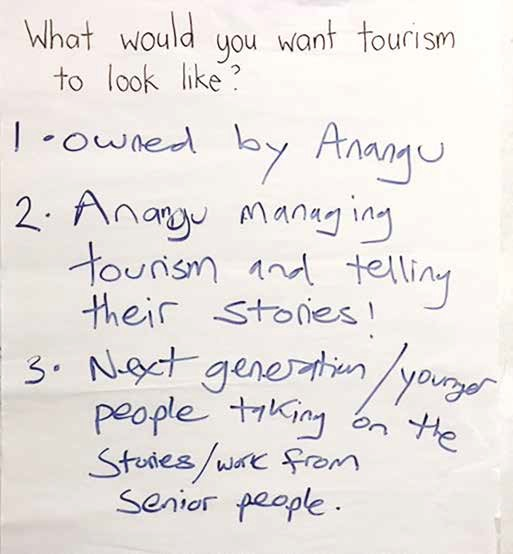 What would you want tourism
to look like?
1. owned by Anangu
2. Anangu managing
tourism and telling
their stories!
3. Next generation/younger
people taking on the
stories/work from
senior people.